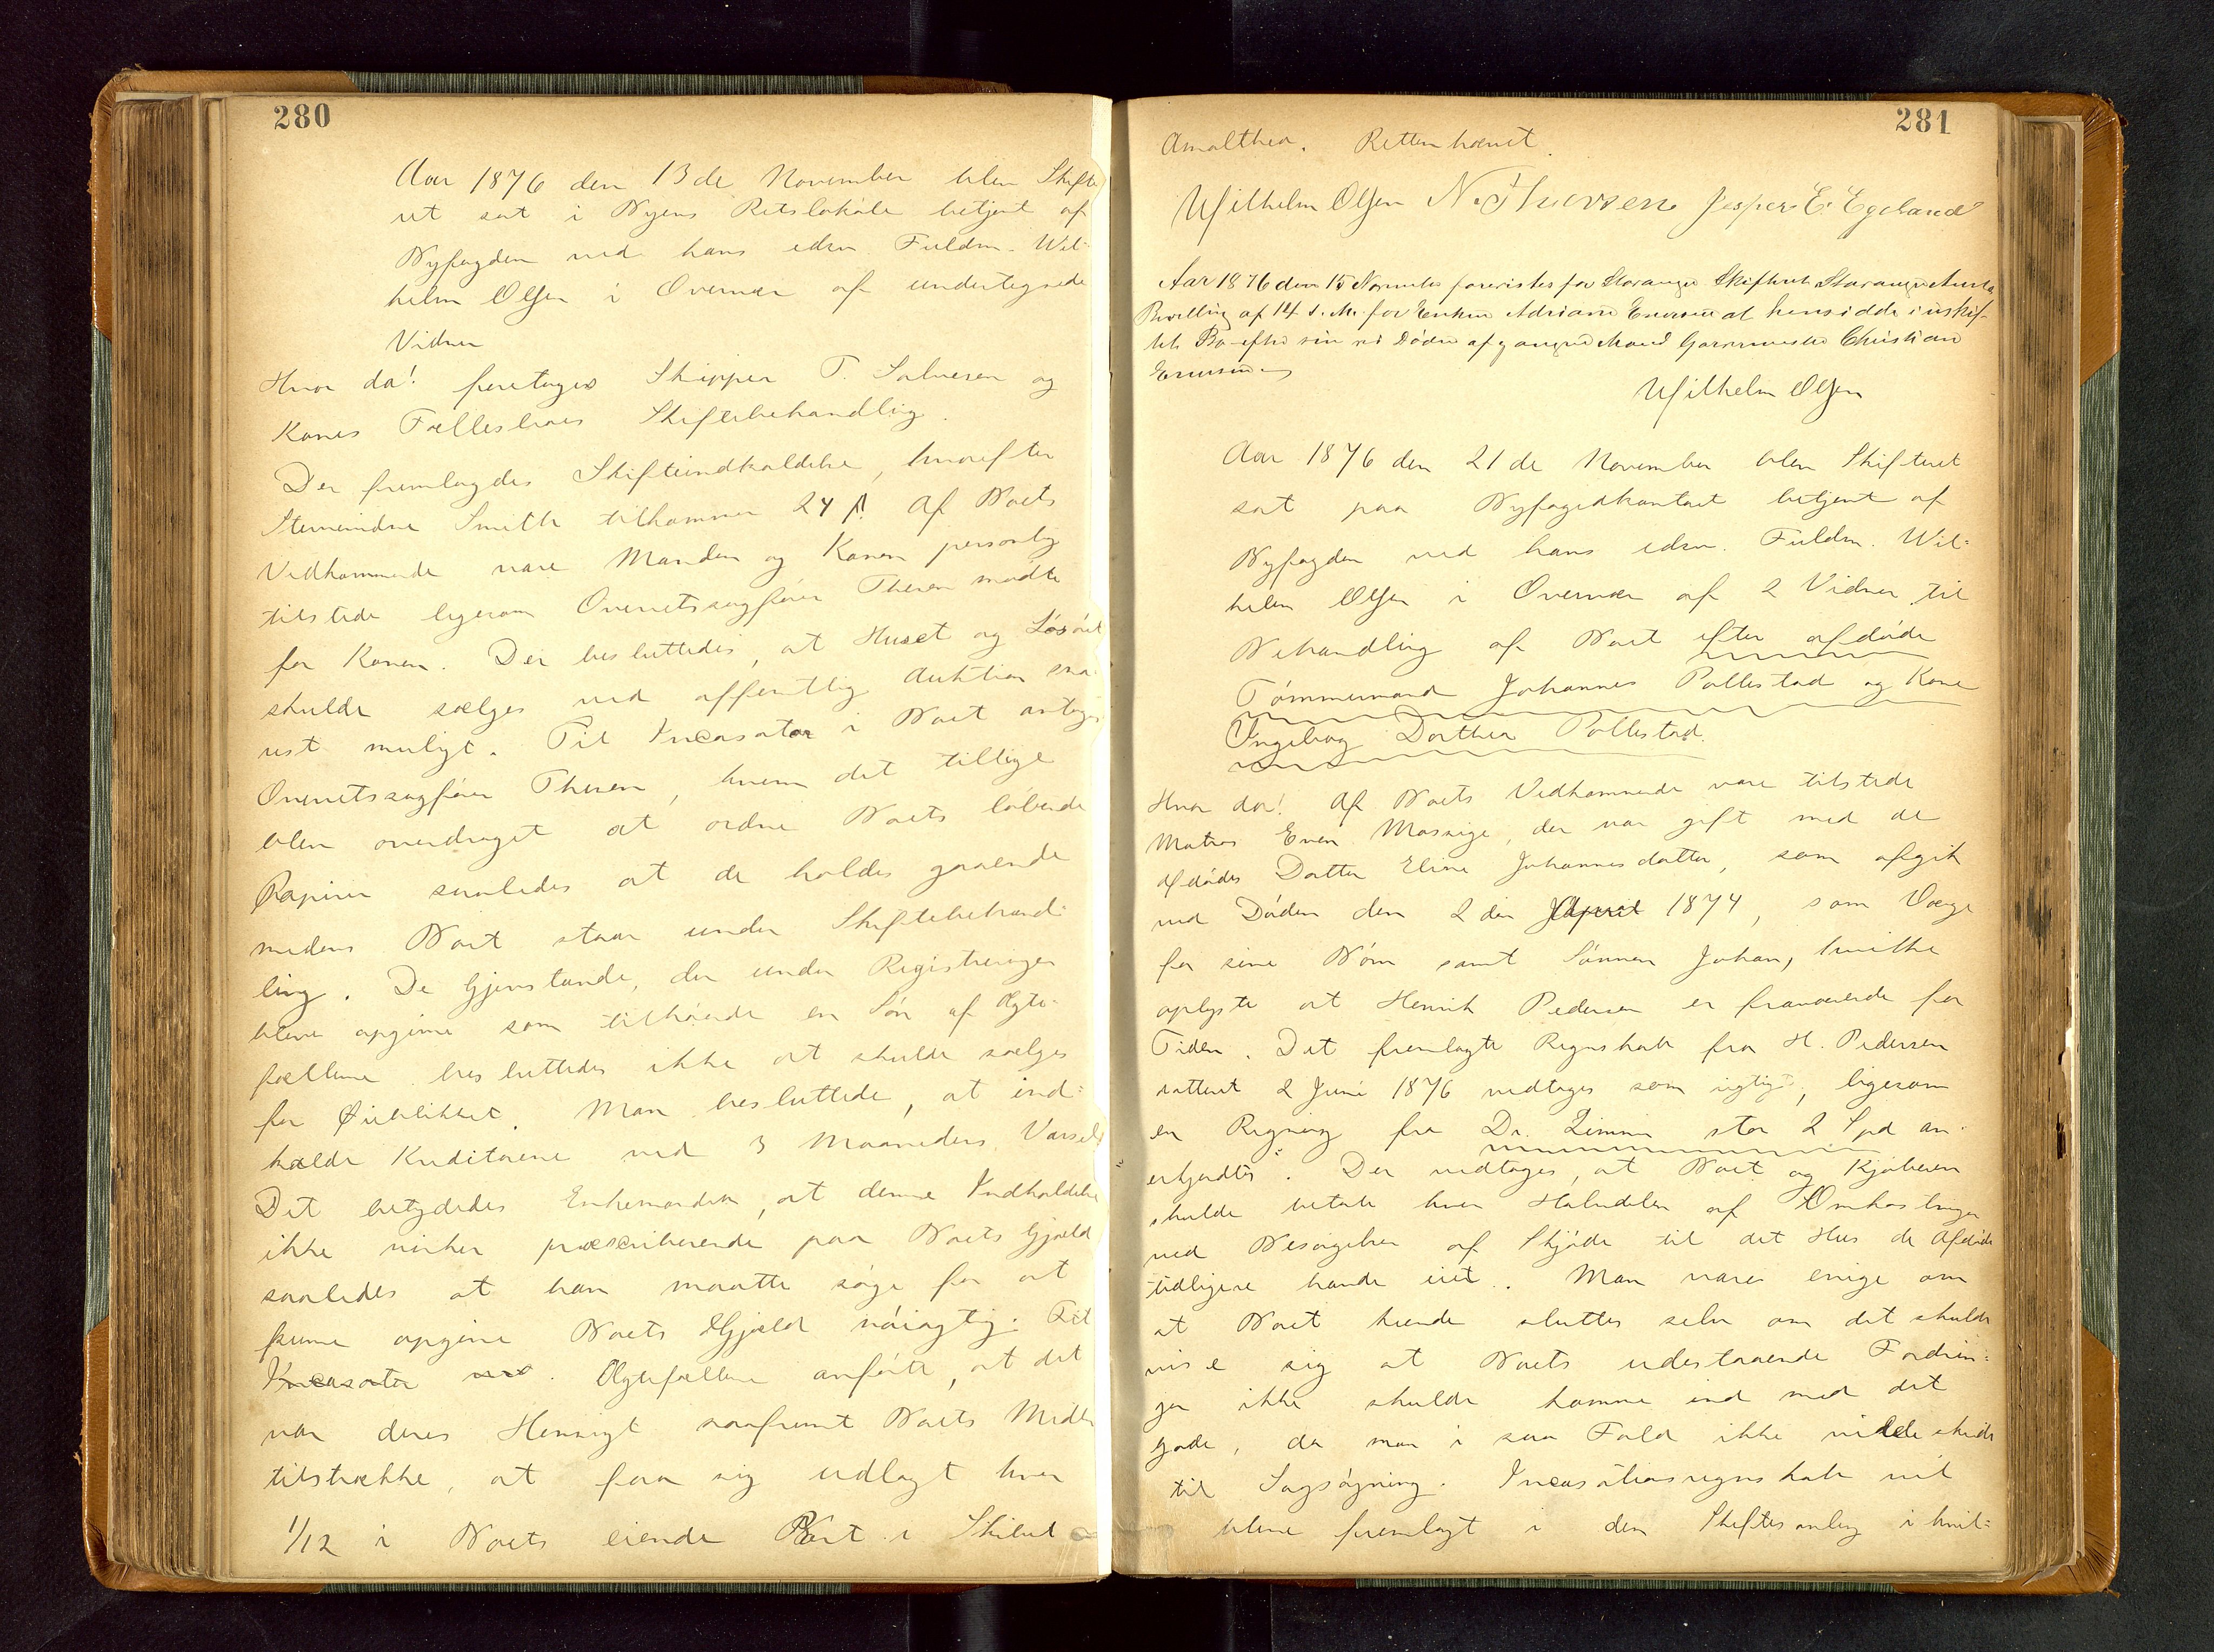 280
Aar 1876 den 13de November blev Skifte
ret sat i Byens Retslokale betjent af
Byfogden ved hans edsv Fuldm. Wil-
helm Olsen i Overvær af undertegnede
Vidner
Hvor da! foretoges Skipper T. Salvesen og
Kones Fællesboes Skiftebehandling.
Der fremlagdes Skifteindkaldelse, hvorefter
Smith tilkommer 24 ß. Af Boets
Vedkommende vare Manden og Konen personlig
tilstede ligesom Overretssagfører Thesen mødte
for Konen. Der besluttedes, at Huset og Løsøret
skulde sælges ved offentlig Auktion sna-
rest muligt. Til Incasator i Boet antoges
Overretssagfører Thesen, hvem det tillige
blev overdraget at ordne Boets løbende
Papirer saaledes at de holdes gaaende
medens Boet staar under Skiftebehand-
ling. De Gjenstande, der under Registreringen
bleve opgivne som tilhørende en Søn af Ægte-
fællerne besluttedes ikke at skulle sælges
for Øieblikket. Man besluttede, at ind-
kalde Kreditorerne ved 3 Maaneders Varsel
Det betydedes Enkemanden, at denne Indkaldelse
ikke virker præscriberende paa Boets Gjæld
saaledes at han maatte sørge for at
kunne opgive Boets Gjæld nøiagtig. Til
Incasator. Ægtefællerne anførte, at det
var deres Hensigt saafremt Boets Midler
tilstrække, at faa sig udlagt hver
1/12 i Boets eiende Part i Skibet
281
Amalthea. Retten hævet.
Wilhelm Olsen N. Thuesen Jesper E. Egeland
Aar 1876 den 15 November forevistes for Stavanger Skifteret Stavanger Amts
Bevilling af 14 d. M. for Enken Adriane Enersen at hensidde i uskif-
tet Bo efter sin ved Døden afgangne Mand Garvermester Christian
Enersen
Wilhelm Olsen
Aar 1876 den 21de November blev Skifteret
sat paa Byfogedkontoret betjent af
Byfogden ved hans edsv. Fuldm. Wil-
helm Olsen i Overvær af 2 Vidner til
Behandling af Boet efter afdøde
Tømmermand Johannes Pollestad og Kone
Ingeborg Dorthea Pollestad.
Hvor da! Af Boets Vedkommende vare tilstede
Matros Even Massige, der var gift med de
afdødes Datter Eline Johannesdatter, som afgik
ved Døden den 2den April 1874, som Værge
for sine Børn samt Sønnen Johan, hvilke
oplyste at Henrik Pedersen er fraværende for
Tiden. Det fremlagte Regnskab fra H. Pedersen
datteret 2 Juni 1876 vedtoges som rigtigt, ligesom
en Regning fra Dr. Zimmer stor 2 Spd an-
erkjendtes. Der vedtoges, at Boet og Kjøberen
skulde betale hver Halvdelen af Omkostninger
ved Besørgelsen af Skjøde til det Hus de Afdøde
tidligere havde eiet. Man vare enige om
at Boet kunde sluttes selv om det skulde
vise sig at Boets udestaaende Fordrin-
ger ikke skulde komme ind med det
gode, da man i saa Fald ikke vilde skride
til Sagsøgning. Incasationsregnskab vil
blive fremlagt i den Skiftesamling i hvil-